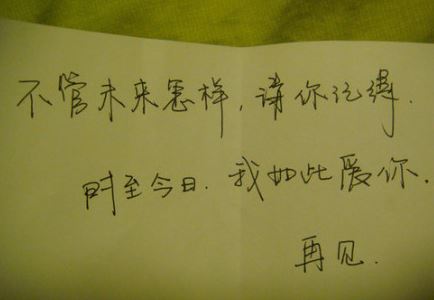 不管未来怎样，请你记得．
时至今日．我如此爱你．
再见．